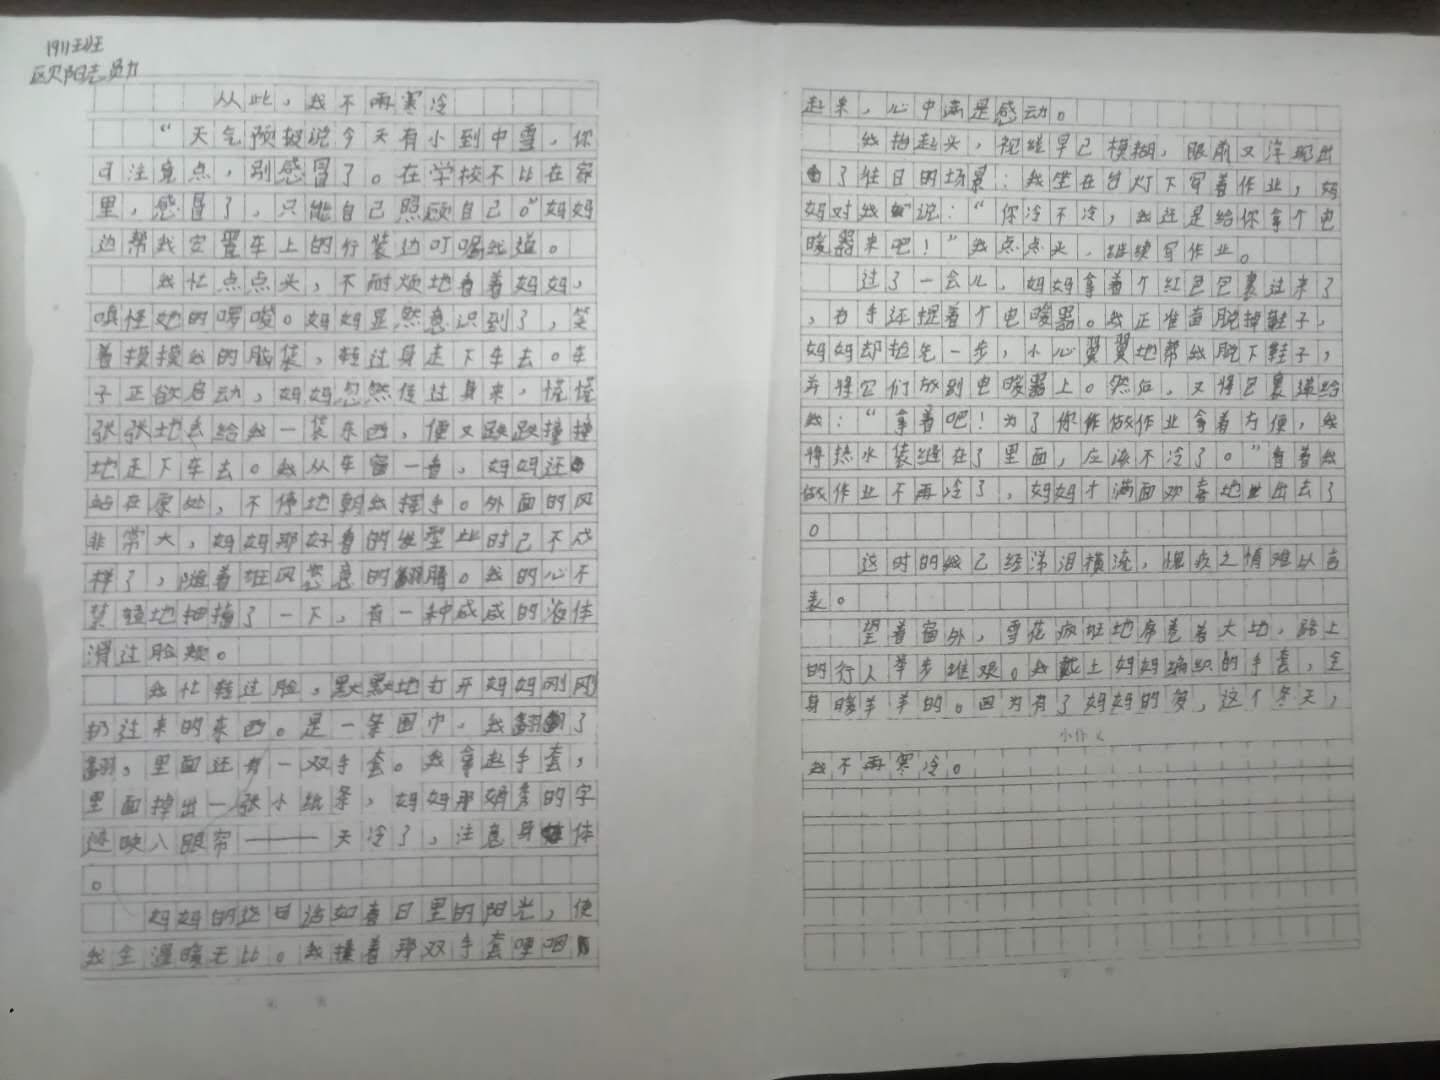 1911班
欧阳志
从此，我不再寒冷
“天气预报说今天有小到中雪，你
可注意点，别感冒了。在学校不比在家
里，感冒了，只能自己照顾自己。”妈妈
边帮我安置车上的行装边叮嘱我道。
我忙点点头，不耐烦地看着妈妈，
嗔怪她的啰嗦。妈妈显然意识到了，笑
着摸摸我的脑袋，转过身走下车去。车
子正欲启动，妈妈忽然传过身来，慌慌
张张地丢给我一袋东西，便又跌跌撞撞
地走下车去。我从车窗一看，妈妈还
站在原处，不停地朝我挥手。外面的风
非常大，妈妈那好看的发型此时已不成
样了，随着狂风恣意的翻腾。我的心不
禁轻地抽搐了一下，有一种咸咸的液体
滑过脸颊。
我忙转过脸，默默地打开妈妈刚刚
扔过来的东西。是一条围巾，我翻了
翻，里面还有一双手套。我拿起手套，
里面掉出一张小纸条，妈妈那娟秀的字
迹映入眼帘——天冷了，注意身体
。
妈妈的这日话如春日里的阳光，使
我全温暖无比。我握着那双手套哽咽
起来，心中满是感动。
我抬起头，视线早已模糊，眼前又浮现出
了往日的场景：我坐在台灯下写着作业，妈
妈对我说：“你冷不冷，我还是给你拿个电
暖器来吧！”我点点头，继续写作业。
过了一会儿，妈妈拿着个红色包裹过来了
，右手还提着个电暖器。我正准备脱掉鞋子，
妈妈却抢先一步，小心翼翼地帮我脱下鞋子，
并将它们放到电暖器上。然后，又将包裹递给
我：“拿着吧！为了你做作业拿着方便，我
将热水袋缝在了里面，应该不冷了。”看着我
做作业不再冷了，妈妈才满面欢喜地出去了
。
这时的我已经涕泪横流，愧疚之情难以言
表。
望着窗外，雪花疯狂地席卷着大地，路上
的行人举步维艰。我戴上妈妈编织的手套，全
身暖羊羊的。因为有了妈妈的爱，这个冬天，
我不再寒冷。